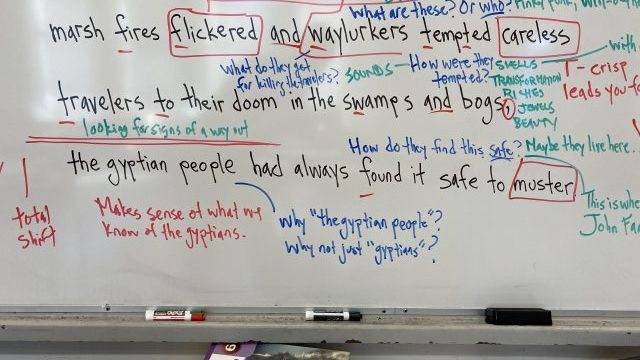 What are these? Or who?
marsh fires flickered and waylurkers tempted careless
What do they get
for killing the travelers?
SOUNDS
How were they
tempted?
SMELLS
TRANSFORMATION
RICHES
JEWELS
BEAUTY
with
T - crisp
leads you to
travelers to their doom in the swamps and bogs,
looking for signs of a way out
How do they find this safe?
Maybe they live here.
the gyptian people had always found it safe to muster
total
shift
Makes sense of what we
know of the gyptians.
Why "the gyptian people"?
Why not just "gyptians"?
This is
John